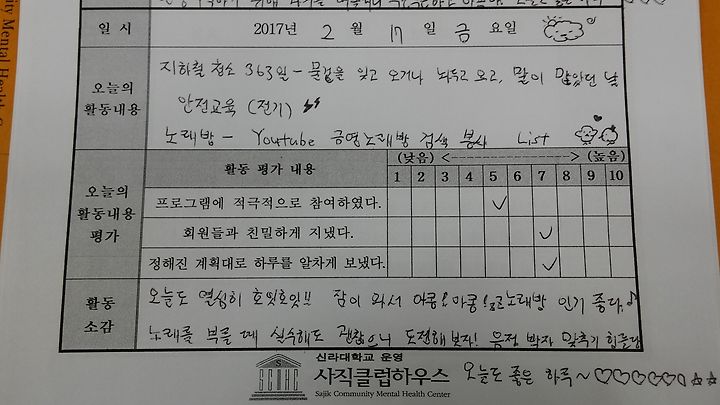 일 시 2017년 2 월 17 일 금 요일
오늘의 활동내용
지하철 청소 363일 - 물건을 잊고 오거나 놔두고 오고, 말이 많았던 날
안전교육 (전기)
노래방 - Youtube 금영노래방 검색 봉사 List
오늘의 활동내용 평가
활동 평가 내용 (낮음) <--------------------> (높음)
1 2 3 4 5 6 7 8 9 10
프로그램에 적극적으로 참여하였다.
회원들과 친밀하게 지냈다.
정해진 계획대로 하루를 알차게 보냈다.
활동 소감
오늘도 열심히 호잇호잇!! 잠이 와서 노래방 인기 좋다.♪
노래를 부를 때 실수해도 괜찮으니 도전해보자! 음정 박자 맞추기 힘들다
신라대학교 운영
SCMHC 사직클럽하우스 오늘도 좋은 하루~♡♡♡♡♡♡☆☆☆
Sajik Community Mental Health Center
ity Mental Health C